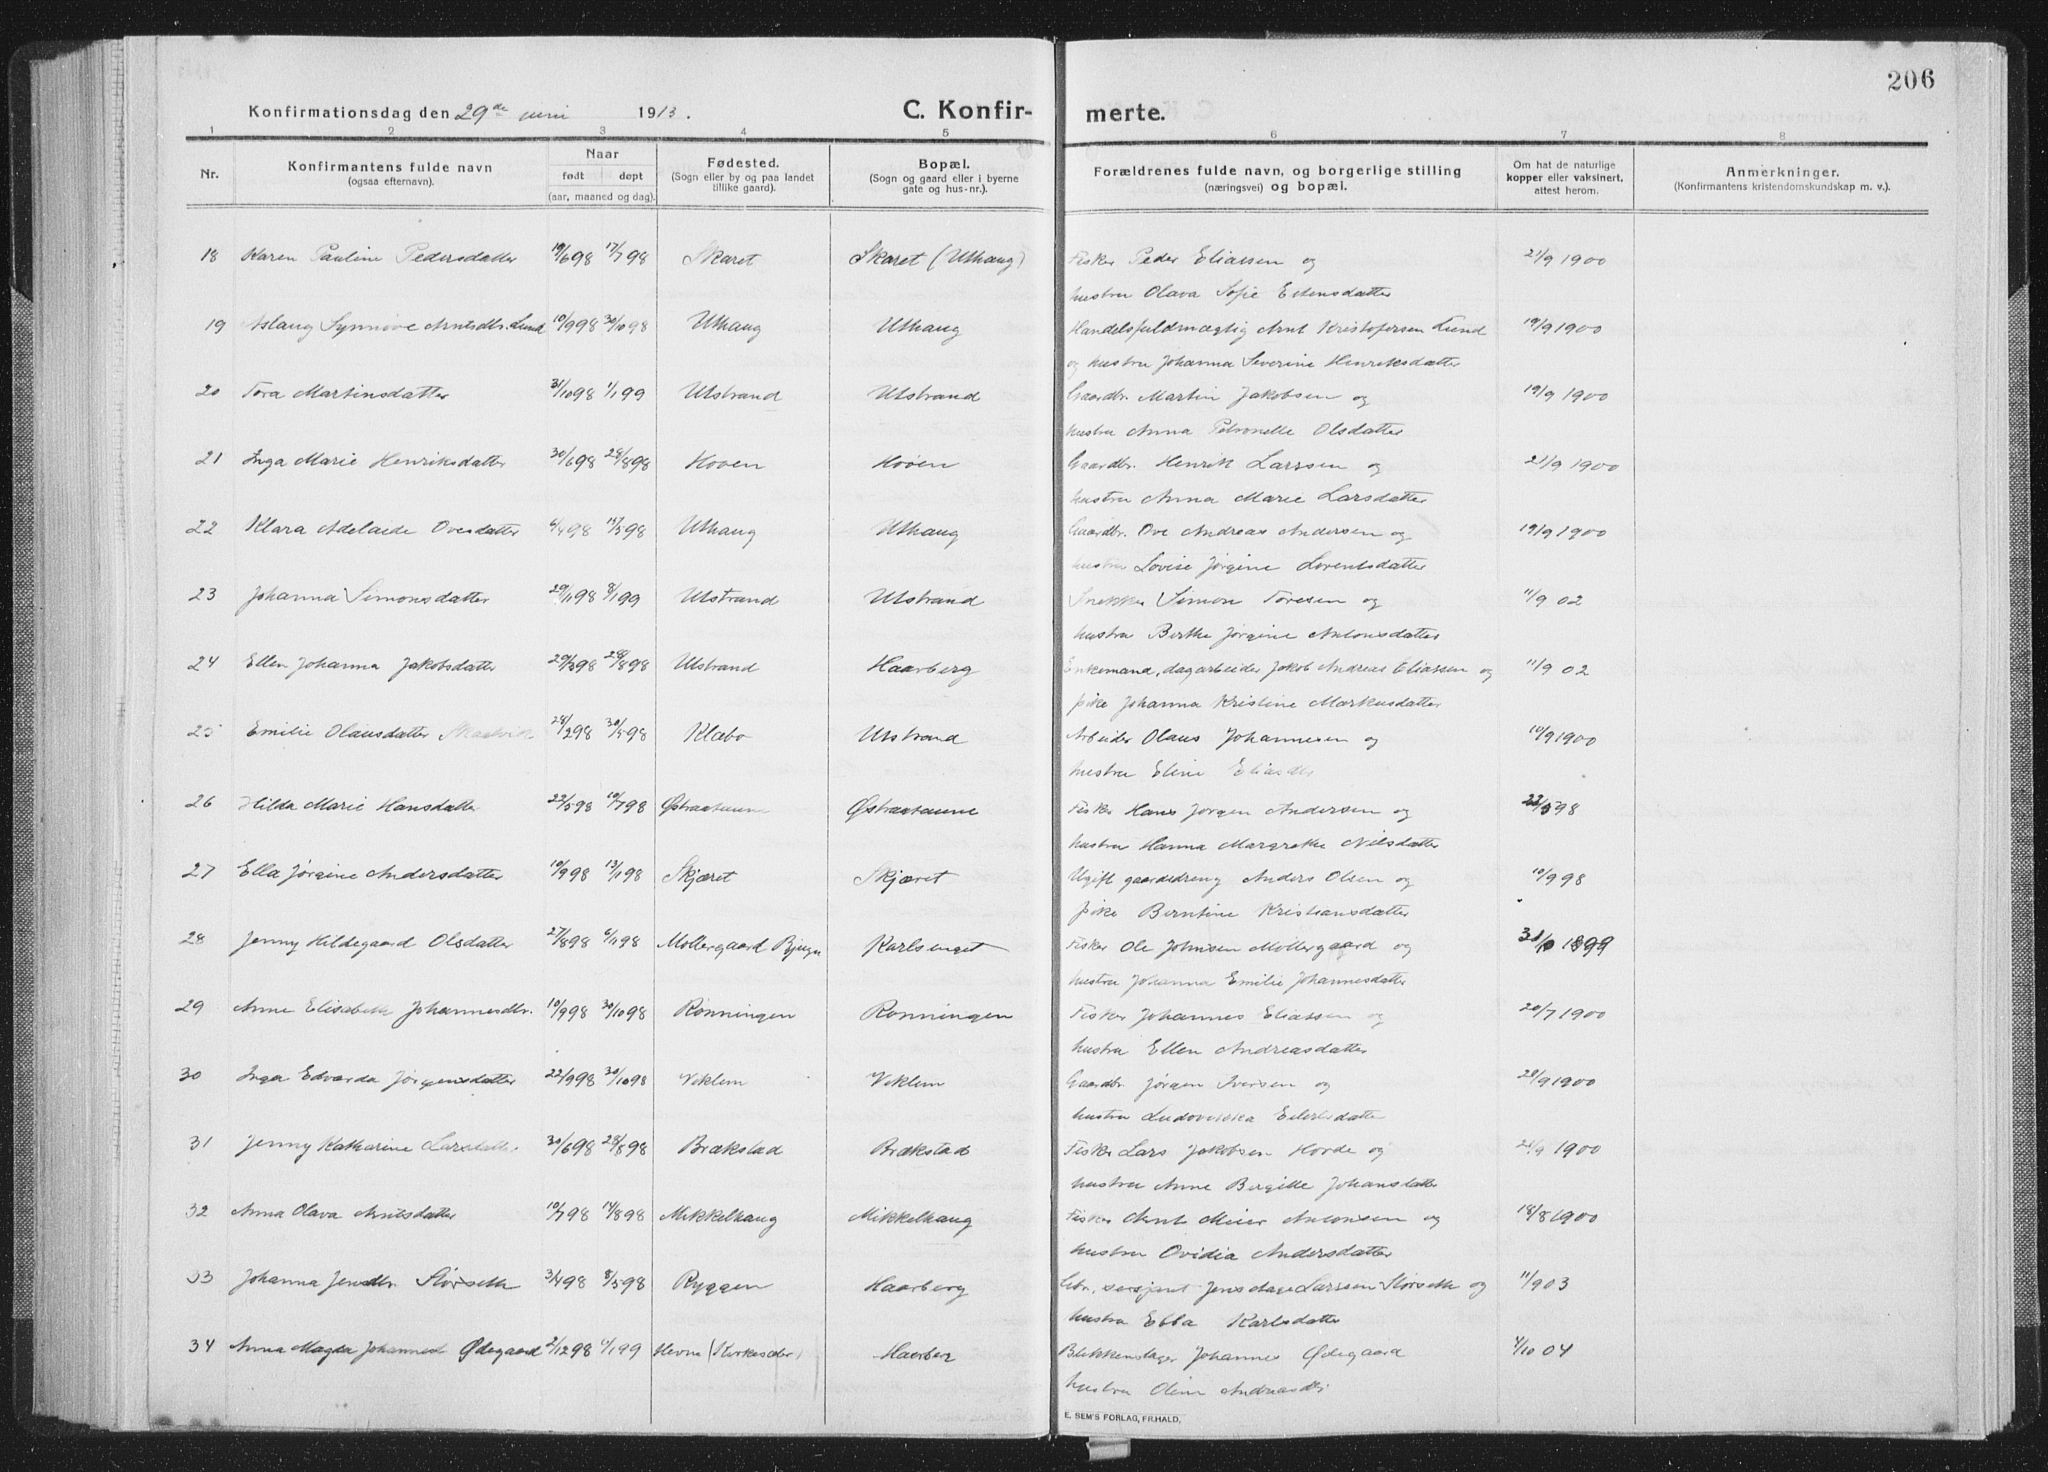 206
Konfirmationsdag den 29de juni 1913.
C. Konfirmerte.
1 2 3 4 5 6 7 8
Nr.
Konfirmantens fulde navn
(ogsaa efternavn).
Naar
født døpt
(aar, maaned og dag).
Fødested.
(Sogn eller by og paa landet
tillike gaard).
Bopæl.
(Sogn og gaard eller i byerne
gate og hus-nr.).
Forældrenes fulde navn, og borgerlige stilling
(næringsvei) og bopæl.
Om hat de naturlige
kopper eller vaksinert,
attest herom.
Anmerkninger.
(Konfirmantens kristendomskundskap m. v.).
18 Karen Pauline Pedersdatter 19/6 98 17/7 98 Skaret Skaret (Uthaug) Fisker Peder Eliassen og 21/9 1900
hustru Olava Sofie Estensdatter
19 Aslaug Synnøve Arntsdtr. Lund 10/9 98 30/10 98 Uthaug Uthaug Handelsfuldmægtig Arnt Kristofersen Lund 19/9 1900
og hustru Johanna Severine Henriksdatter
20 Tora Martinsdatter 31/10 98 1/1 99 Utstrand Utstrand Gaardbr. Martin Jakobsen og 19/9 1900
hustru Anna Petronelle Olsdatter
21 Inga Marie Henriksdatter 30/6 98 28/8 98 Hoven Hoven Gaardbr. Henrik Larssen og 21/9 1900
hustru Anna Marie Larsdatter
22 Klara Adelaide Ovesdatter 6/4 98 15/5 98 Uthaug Uthaug Gaardbr. Ove Andreas Andersen og 19/9 1900
hustru Lovise Jørgine Lorentsdatter
23 Johanna Simonsdatter 29/11 98 8/1 99 Utstrand Utstrand Snekker Simon Toresen og 11/9 02
hustru Berthe Jørgine Antonsdatter
24 Ellen Johanna Jakobsdatter 29/3 98 28/8 98 Utstrand Haarberg Enkemand, dagarbeider Jakob Andreas Eliassen og 11/9 02
pike Johanna Kristine Markusdatter
25 Emilie Olausdatter 28/2 98 30/5 98 Klæbo Utstrand Arbeider Olaus Johannesen og 10/9 1900
hustru Eline Eliasdtr
26 Hilda Marie Hansdatter 22/5 98 10/7 98 Østraataune Østraataune Fisker Hans Jørgen Andersen og 22/5 98
hustru Hanna Margrethe Nilsdatter
27 Ella Jørgine Andersdatter 10/9 98 13/11 98 Skjæret Skjæret Ugift gaardsdreng Anders Olsen og 10/9 98
pike Berntine Kristiansdatter
28 Jenny Hildegaard Olsdatter 27/8 98 6/11 98 Møllergaard Bjugn Karlsenget Fisker Ole Johnsen Møllergaard og 1899
hustru Johanna Emilie Johannesdatter
29 Anne Elisabeth Johannesdtr. 10/9 98 30/10 98 Rønningen Rønningen Fisker Johannes Eliassen og 20/7 1900
hustru Ellen Andreasdatter
30 Inga Edvarda Jørgensdatter 22/9 98 30/10 98 Viklem Viklem Gaardbr. Jørgen Iversen og 20/9 1900
hustru Ludovikka Eilertsdatter
31 Jenny Katharine Larsdatter 30/6 98 28/8 98 Brækstad Brækstad Fisker Lars Jakobsen Hovde og 21/9 1900
hustru Anne Bergitte Johansdatter
32 Anna Olava Arntsdatter 10/7 98 14/8 98 Mikkelhaug Mikkelhaug Fisker Arnt Meier Antonsen og 18/8 1900
hustru Ovidia Andersdatter
33 Johanna Jensdtr. Størseth 3/4 98 8/5 98 Ryggen Haarberg Gbr. sersjant Jens Aage Larssen Størseth og 11/9 03
hustru Ebba Karlsdatter
34 Anna Magda Johannesd Ødegaard 2/12 98 6/1 99 Hevne (Kirkesdtr) Haarberg Blikkenslager Johannes Ødegaard 4/10 04
hustru Oline Andreasdtr
E. SEM'S FORLAG, FR.HALD.